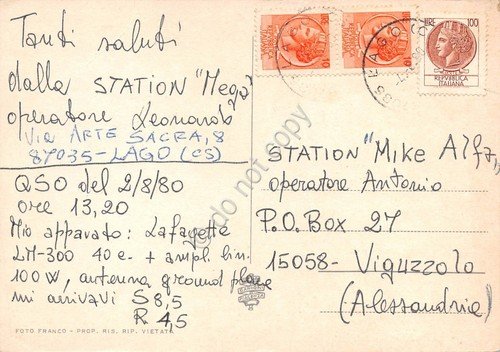 Tanti saluti
dalla STATION "Mega"
operatore Leonardo
Via ARTE SACRA, 8
87035-LAGO (CS)
QSO del 2/8/80
ore 13,20
Mio apparato: Lafayette
LM-300 40 e- + ampl. lin.
100W, antenna ground plane
mi arrivavi S 8,5
R 4,5
FOTO FRANCO - PROP. RIS. RIP. VIETATA
LIRE 100
REPVBBLICA
ITALIANA
STATION "Mike Alfa"
operatore Antonio
P.O. Box 27
15058- Viguzzolo
(Alessandria)
do not copy